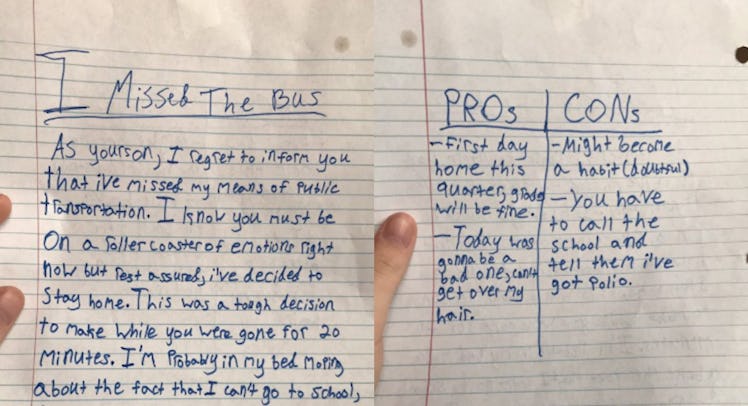 I Missed The Bus
As yourson, I regret to inform you
that ive missed my means of Public
transportation. I know you must be
On a roller coaster of emotions right
now but rest assured, i've decided to
Stay home. This was a tough decision
to make while you were gone for 20
minutes. I'm Probably in my bed moping
about the fact that I can't go to school,
PROs
-First day
home this
quarter, grade
will be fine.
-Today was
gonna be a
bad one, can't
get over my
hair.
CONs
-Might become
a habit (doubtful)
-You have
to call the
school and
tell them i've
got Polio.